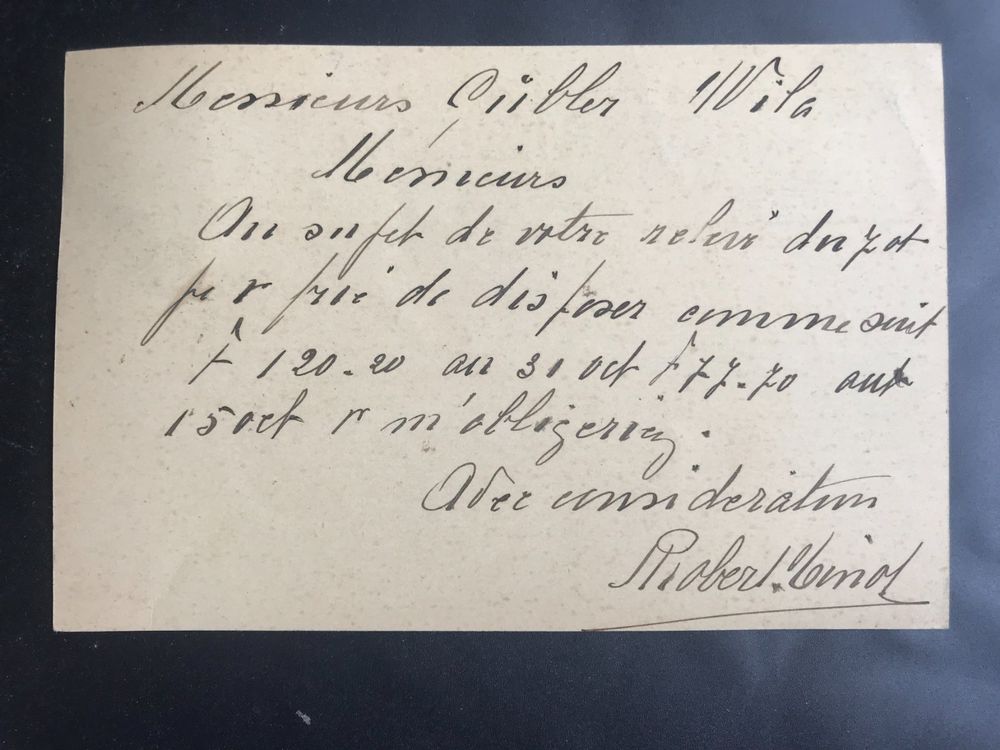 Messieurs Gübler Wila
Messieurs
Au sujet de votre relevé du 7 ct
je v prie de disposer comme suit
f 120.20 au 31 oct f 77.70 au
15 oct v m'obligeriez.
Avec consideration
Robert Minot